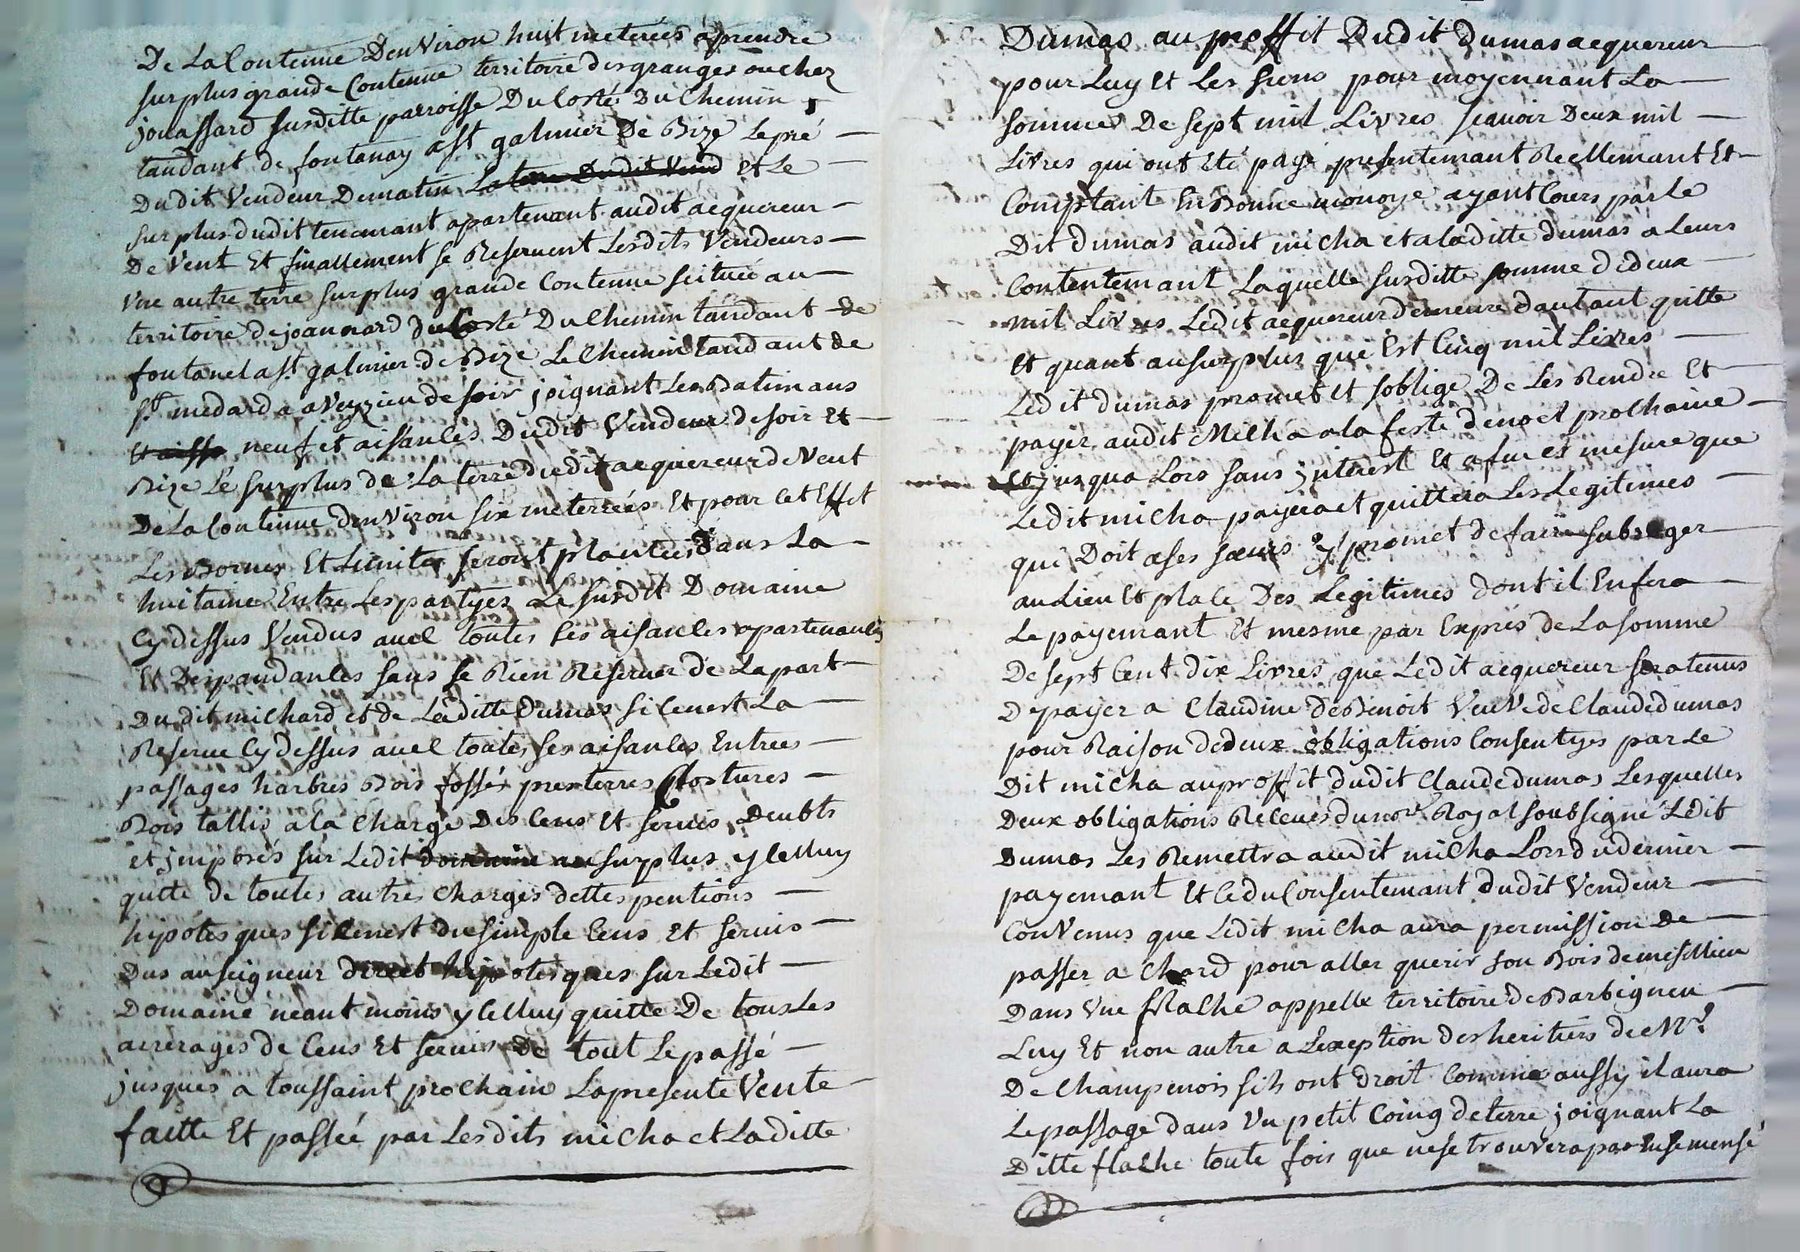 De La Contenue Denviron huit meterées a prendre
sur plus grande Contenue territoire des granges ou chez
jouassard susditte parroisse Du Costé Du Chemin
tandant de fontanay a St galmier De Bize Le pré
Dudit Vendeur Dematin Et Le
surplus dudit tenemant apartenant audit acquereur
De Vent Et finallement se Reservent Lesdits Vendeurs
Une autre terre sur plus grande Contenue scituée au
territoire de joannard du Costé Du Chemin tandant de
fontanel a St galmier de Bize Le Chemin tandant de
St medard a aVeyzieu de soir joignant Les Batimans
neuf et aisances Dudit Vendeur de soir Et
Bize Le surplus de La terre dudit acquereur de Vent
De La Contenue denviron six meterées Et pour Cet Effit
Les Bornes Et Limites seront plantées dans La
huitaine Entre Les partyes Le susdit Domaine
Cy dessus Vendus avec toutes ses aisances apartenances
Et Depandances sans se Rien Reserver de La part
Du dit michard et de Laditte Dumas si Cenest La
Reserve Cy dessus avec toutes ses aisances Entrees
passages harbres Bois fossés pres terres Clostures
Bois tallis a la Charge Des Cens Et servis Deubts
et jmposés sur Ledit surplus ycelluy
quitte de toutes autres Charges dettes pentions
hipotesques si Cenest du simple Cens Et servis
Dus au seigneur direct hipotesques sur Ledit
Domaine neant moins ycelluy quitte De tous Les
arrerages de Cens Et servis De tout Le passé
jusques a toussaint prochain La presente Vente
faitte Et passée par Lesdits micha et Laditte
Dumas au proffit Dudit dumas acquereur
pour Luy Et Les siens pour moyennant La
somme De sept mil Livres scavoir Deux mil
Livres qui ont Eté payé presentemant Reellemant Et
Comptant En Bonne monoye ayant Cours par Le
Dit dumas audit micha et a laditte dumas a Leurs
Contentemant Laquelle susditte somme de deux
mil Livres Ledit acquereur demeure dautant quitte
Et quant au surplus que Est Cinq mil Livres
Ledit dumas promet Et soblige De Les Rendre Et
payer audit Micha a la feste de noel prochaine
Et jusqua Lors sans jnterest Et a fur et mesure que
Ledit micha payera et quittera Les Legitimes
qui Doit a ses sœurs promet de faire subroger
au Lieu Et place Des Legitimes dont il En fera
Le payemant Et mesme par Exprés de La somme
De sept Cent dix Livres que Ledit acquereur sera tenus
De payer a Claudine de Benoit Veuve de Claude dumas
pour Raison de deux obligations Consentyes par Le
Dit micha au proffit dudit Claude dumas Lesquelles
Deux obligations Receues du nore Royal soubsigné Ledit
Dumas Les Remettra audit micha Lors du dernier
payemant Et Ce du Consentemant dudit Vendeur
ConVenus que Ledit micha aura permission De
passer a Chard pour aller querir son Bois de
Dans Une flache appellé territoire de Barbigneu
Luy Et non autre a Lexeption des heritiers de Mr
De Champenois sils ont droit Comme aussy il aura
Le passage dans Un petit Coing de terre joignant La
Ditte flache toute fois que ne se trouvera pas Ensemensé